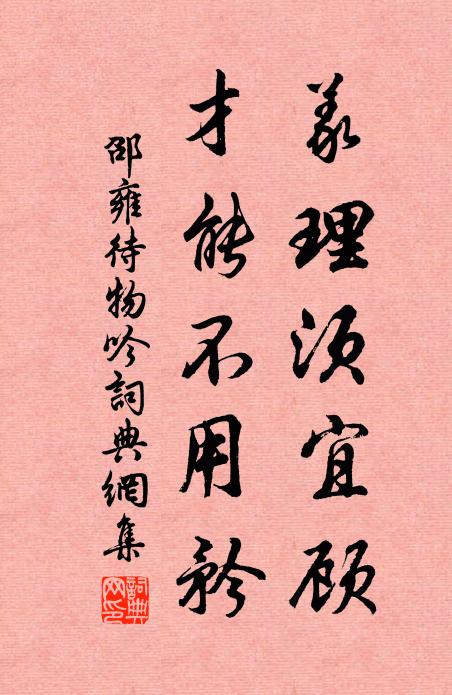 義理須宜顧
才能不用矜
邵雍待物吟詞典網集
詞典網印